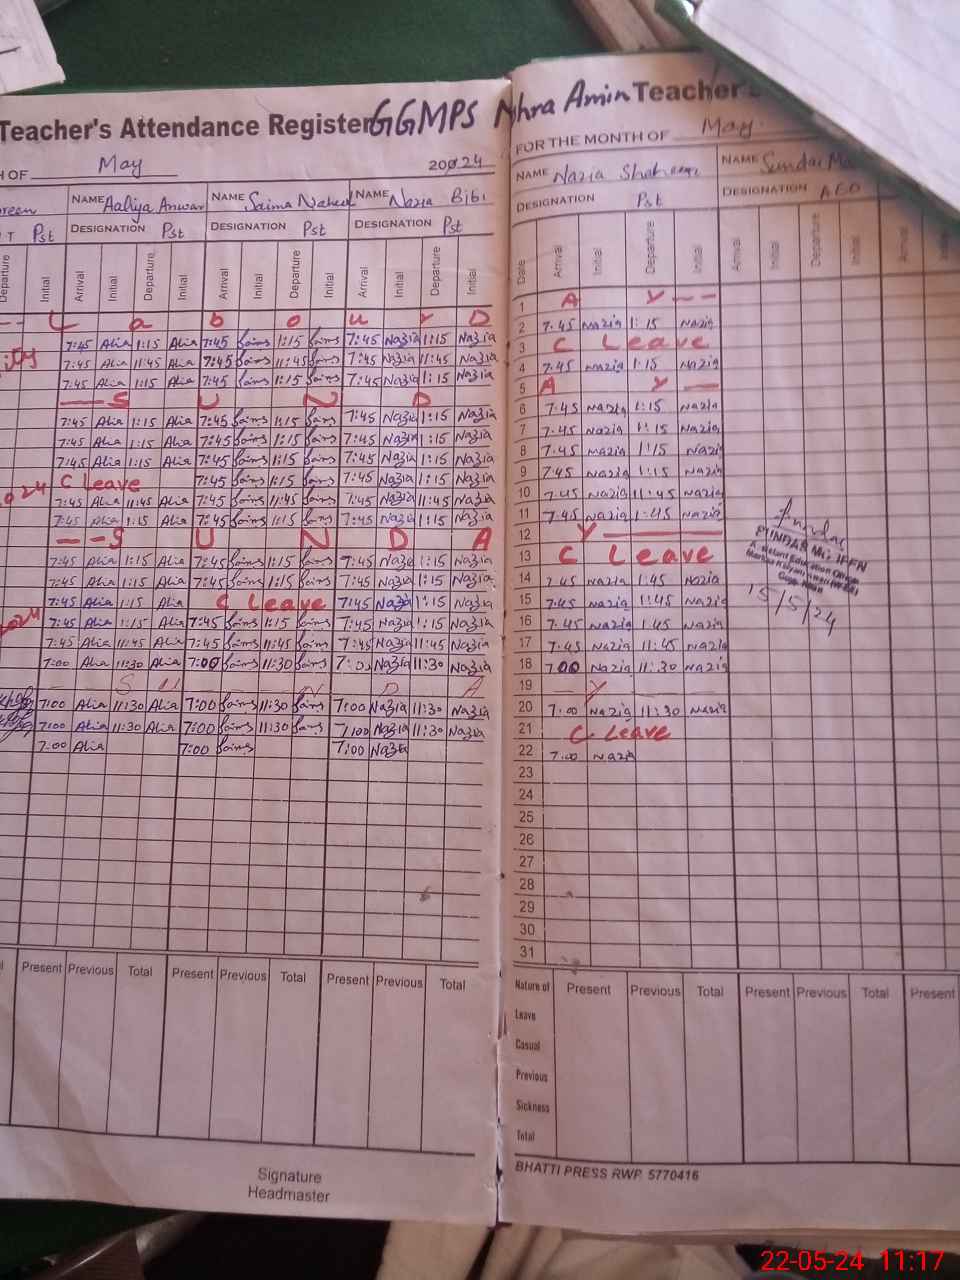 Teacher's Attendance Register GGMPS Nhra Amin
H OF May 2024
NAME Aaliya Anwar NAME Saima Naheed NAME Nazia Bibi
T Pst DESIGNATION Pst DESIGNATION Pst DESIGNATION Pst
Departure Initial Arrival Initial Departure Initial Arrival Initial Departure Initial Arrival Initial Departure Initial
L a b o u r D
7:45 Alia 1:15 Alia 7:45 Saima 1:15 Saima 7:45 Nazia 1:15 Nazia
7:45 Alia 11:45 Alia 7:45 Saima 11:45 Saima 7:45 Nazia 11:45 Nazia
7:45 Alia 1:15 Alia 7:45 Saima 1:15 Saima 7:45 Nazia 1:15 Nazia
S U N D
7:45 Alia 1:15 Alia 7:45 Saima 1:15 Saima 7:45 Nazia 1:15 Nazia
7:45 Alia 1:15 Alia 7:45 Saima 1:15 Saima 7:45 Nazia 1:15 Nazia
7:45 Alia 1:15 Alia 7:45 Saima 1:15 Saima 7:45 Nazia 1:15 Nazia
C Leave 7:45 Saima 1:15 Saima 7:45 Nazia 1:15 Nazia
7:45 Alia 11:45 Alia 7:45 Saima 11:45 Saima 7:45 Nazia 11:45 Nazia
7:45 Alia 1:15 Alia 7:45 Saima 1:15 Saima 7:45 Nazia 1:15 Nazia
S U N D A
7:45 Alia 1:15 Alia 7:45 Saima 1:15 Saima 7:45 Nazia 1:15 Nazia
7:45 Alia 1:15 Alia 7:45 Saima 1:15 Saima 7:45 Nazia 1:15 Nazia
7:45 Alia 1:15 Alia C Leave 7:45 Nazia 1:15 Nazia
7:45 Alia 1:15 Alia 7:45 Saima 1:15 Saima 7:45 Nazia 1:15 Nazia
7:45 Alia 11:45 Alia 7:45 Saima 11:45 Saima 7:45 Nazia 11:45 Nazia
7:00 Alia 11:30 Alia 7:00 Saima 11:30 Saima 7:00 Nazia 11:30 Nazia
S U N D A
7:00 Alia 11:30 Alia 7:00 Saima 11:30 Saima 7:00 Nazia 11:30 Nazia
7:00 Alia 11:30 Alia 7:00 Saima 11:30 Saima 7:00 Nazia 11:30 Nazia
7:00 Alia 7:00 Saima 7:00 Nazia
Present Previous Total Present Previous Total Present Previous Total
Signature
Headmaster
Teacher's
FOR THE MONTH OF May
NAME Nazia Shaheen NAME Sundas
DESIGNATION Pst DESIGNATION AEO
Date Arrival Initial Departure Initial Arrival Initial Departure Initial Arrival
1 A Y
2 7.45 Nazia 1:15 Nazia
3 C Leave
4 7.45 Nazia 1:15 Nazia
5 A Y
6 7:45 Nazia 1:15 Nazia
7 7.45 Nazia 1:15 Nazia
8 7.45 Nazia 1:15 Nazia
9 7.45 Nazia 1:15 Nazia
10 7.45 Nazia 11:45 Nazia
11 7.45 Nazia 1:45 Nazia
12 Y
13 C Leave
14 7.45 Nazia 1:45 Nazia
15 7.45 Nazia 1:45 Nazia
16 7.45 Nazia 1.45 Nazia
17 7.45 Nazia 11:45 Nazia
18 7.00 Nazia 11:30 Nazia
19 Y
20 7.00 Nazia 11:30 Nazia
21 C Leave
22 7.00 Nazia
23
24
25
26
27
28
29
30
31
15/5/24
Nature of Present Previous Total Present Previous Total Present
Leave
Casual
Previous
Sickness
Total
BHATTI PRESS RWP. 5770416
22-05-24 11:17